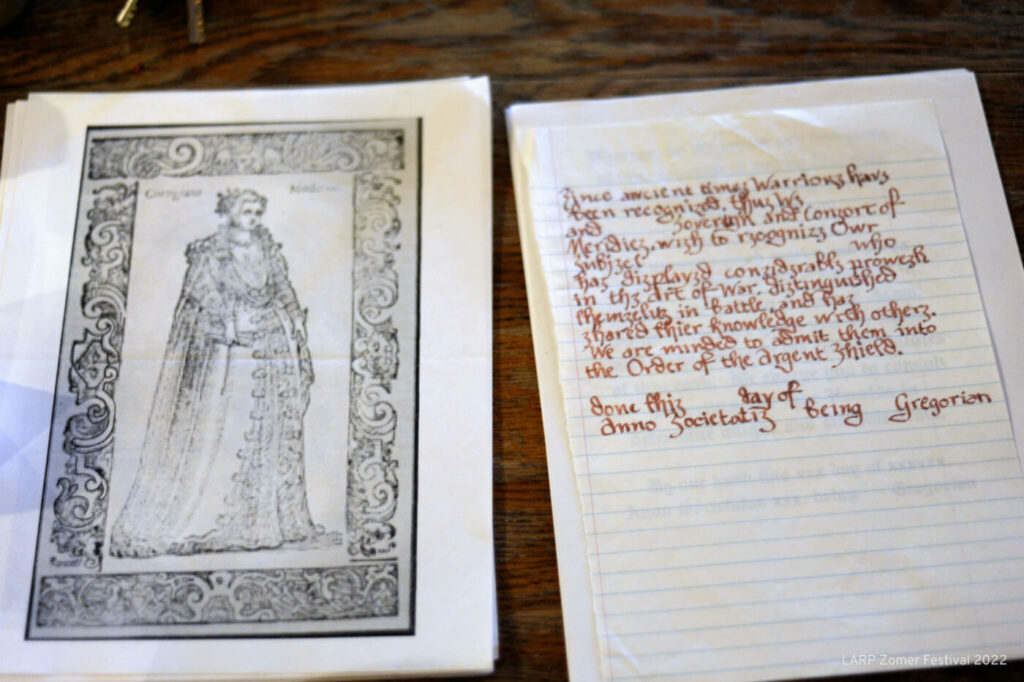 Since ancient times Warriors have
been recognized, thus We
and Sovereign and Consort of
Meridies, wish to recognize Owr
Subject who
has displayed considerable prowess
in the Art of War, distinguished
themselves in battle, and has
shared thier knowledge with others.
We are minded to admit them into
the Order of the Argent Shield.
done this day of
Anno Societatis being Gregorian
LARP Zomer Festival 2022